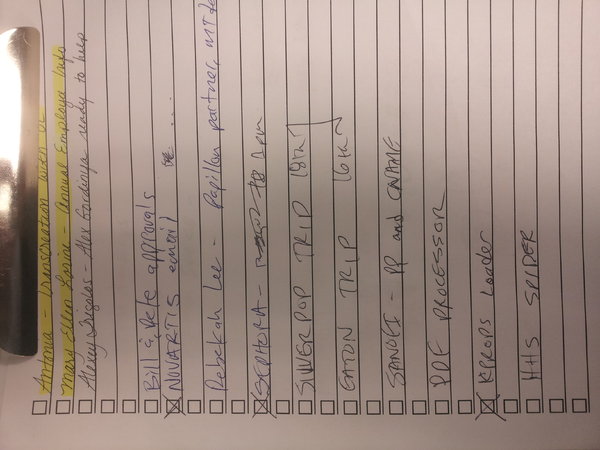 Antonia - Transcreation with
Mary Ellen - Annual Employee Info
Alexey - Alex Gordinya ready to help
Bill & Pete approvals
NOVARTIS email ...
Rebekah Lee - Papillon partner, MT
SEPHORA - 1pm
SILVERPOP TRIP 18th?
EATON TRIP 16th?
SANOFI - PP and CNAME
PDF PROCESSOR
KPROPS Loader
HHS SPIDER